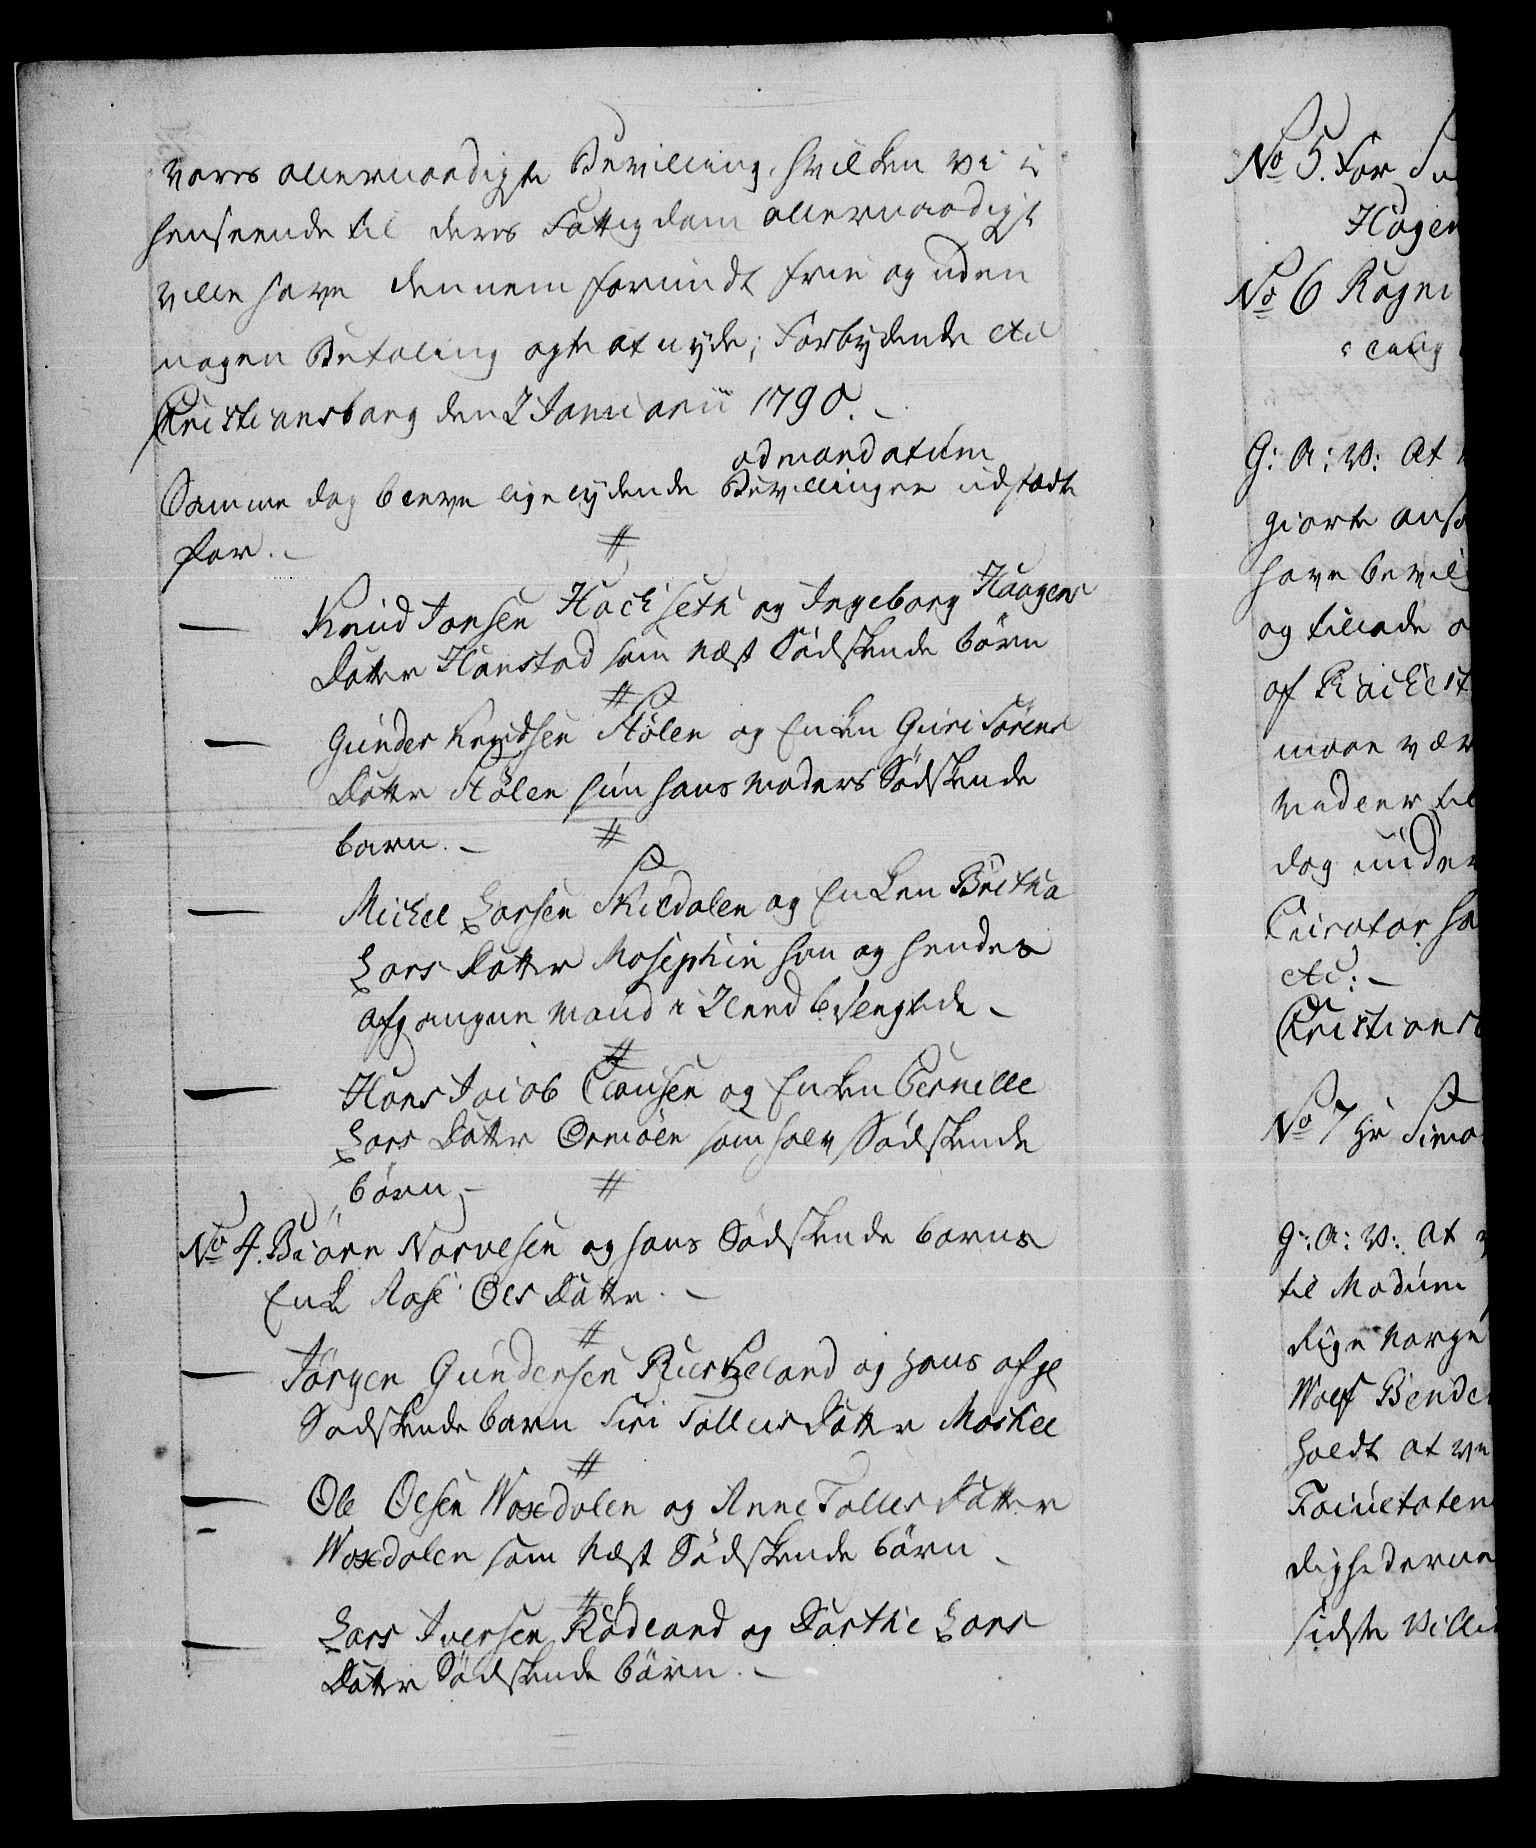 vores allernaadigste Bevilling, hvilken vi i
henseende til deres Fattigdom allernaadigst
ville have dennem forundt frie og uden
nogen Betaling agte at nyde; Forbydende etc
Christiansborg den 2 Januarii 1790. –
ad mandatum
Samme dag bleve ligelydende Bevillinger udstædte
for. –
Knud Jonsen Hochseth og Ingeborg Haagens
Datter Hanstad som Næst Södskende börn
Gunder Knudsen Stölen og Enken Guri Sörens
Datter Stölen hun hans Moders Södskende
barn. –
Michel Larsen Skildalen og Enken Britha
Lars Datter Mosephin han og hendes
afgangne Mand i 2den Led beslægtede –
Hans Jacob Clausen og Enken Pernelle
Lars Datter Ormöen som halv Södskende
börn –
No 4. Biörn Narvesen og hans Södskende barns
Enke Aase Ols Datter. –
Jörgen Gundersen Birkeland og hans afge
Södskende barn Siri Tollevs Datter Moshee
Ole Olsen Woxdalen og Anne Tolles Datter
Woxdalen som Næst Södskende börn –
Lars Iversen Rödland og Dorthe Lars
Datter Södskende börn. –
No 5. For
Hagen
No 6 Ragni
G: A: V: At
giorte
have bevil
og tillade
af
maae vær
Midler til
dog under
Curator ha
etc: –
Christiansb
No 7 Hr Simo
G: A: V: At
til Modum
Rige Norge
Wolf Bende
holdt at
Facultaten
dighederne
sidste Villi